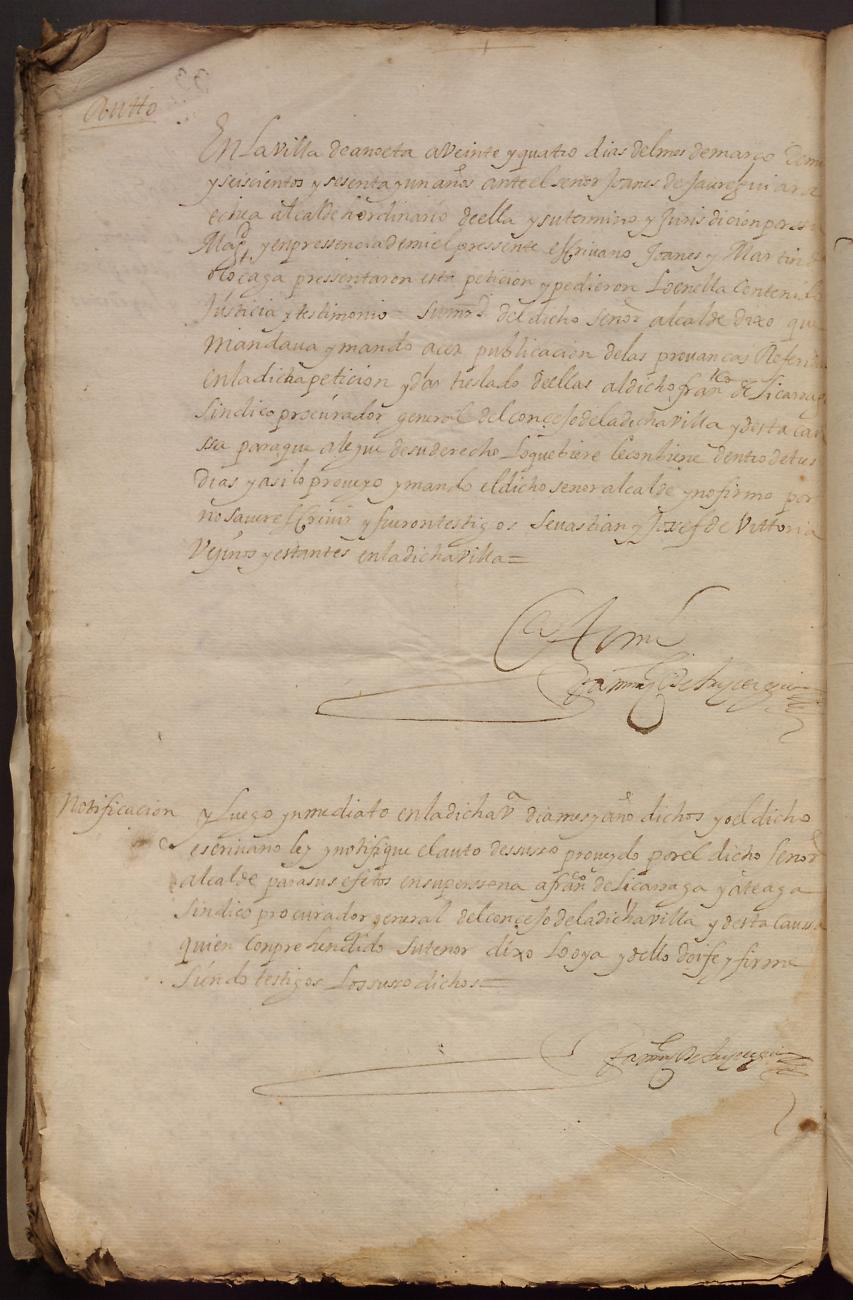 Autto
En La villa de anoeta a Veinte y quatro dias del mes de março de mi
y seiscientos y sesenta y un años ante el señor Joanes de Jaureguiara
echea alcalde hordinario de ella y su termino y Jurisdicion por su
Magd y en pressencia de mi el pressente escriuano Joanes y Martin de
pressentaron esta peticion y pedieron Lo en ella Contenido
Justicia y testimonio = Su md del dicho Señor alcalde dixo que
Mandaua y mando acer publicacion de las prouanças Referidas
en la dicha peticion y das treslado de ellas al dicho franco de Liçarraga
Sindico procurador general del conçejo de la dicha villa y desta Cau
ssa para que alegue de su derecho Lo que biere le conbiene dentro de tres
dias y asi lo proueyo y mando el dicho señor alcalde y no firmo por
no Saver esCriuir y fueron testigos Sevastian y Josef de Vittoria
Veçinos y estantes en la dicha villa =
Ante mi
Notificacion y Luego ynmediato en la dicha va dia mes y año dichos yo el dicho
escriuano ley y notifique el auto de ssusso proueydo por el dicho Señor
alcalde para sus efetos en su perssona a franco de Liçarraga y ateaga
Sindico procurador general del conçejo de la dicha villa y desta Caussa
quien Conprehendido Su tenor dixo Lo oya y dello doi fe y firme
Siendo testigos Los suso dichos =